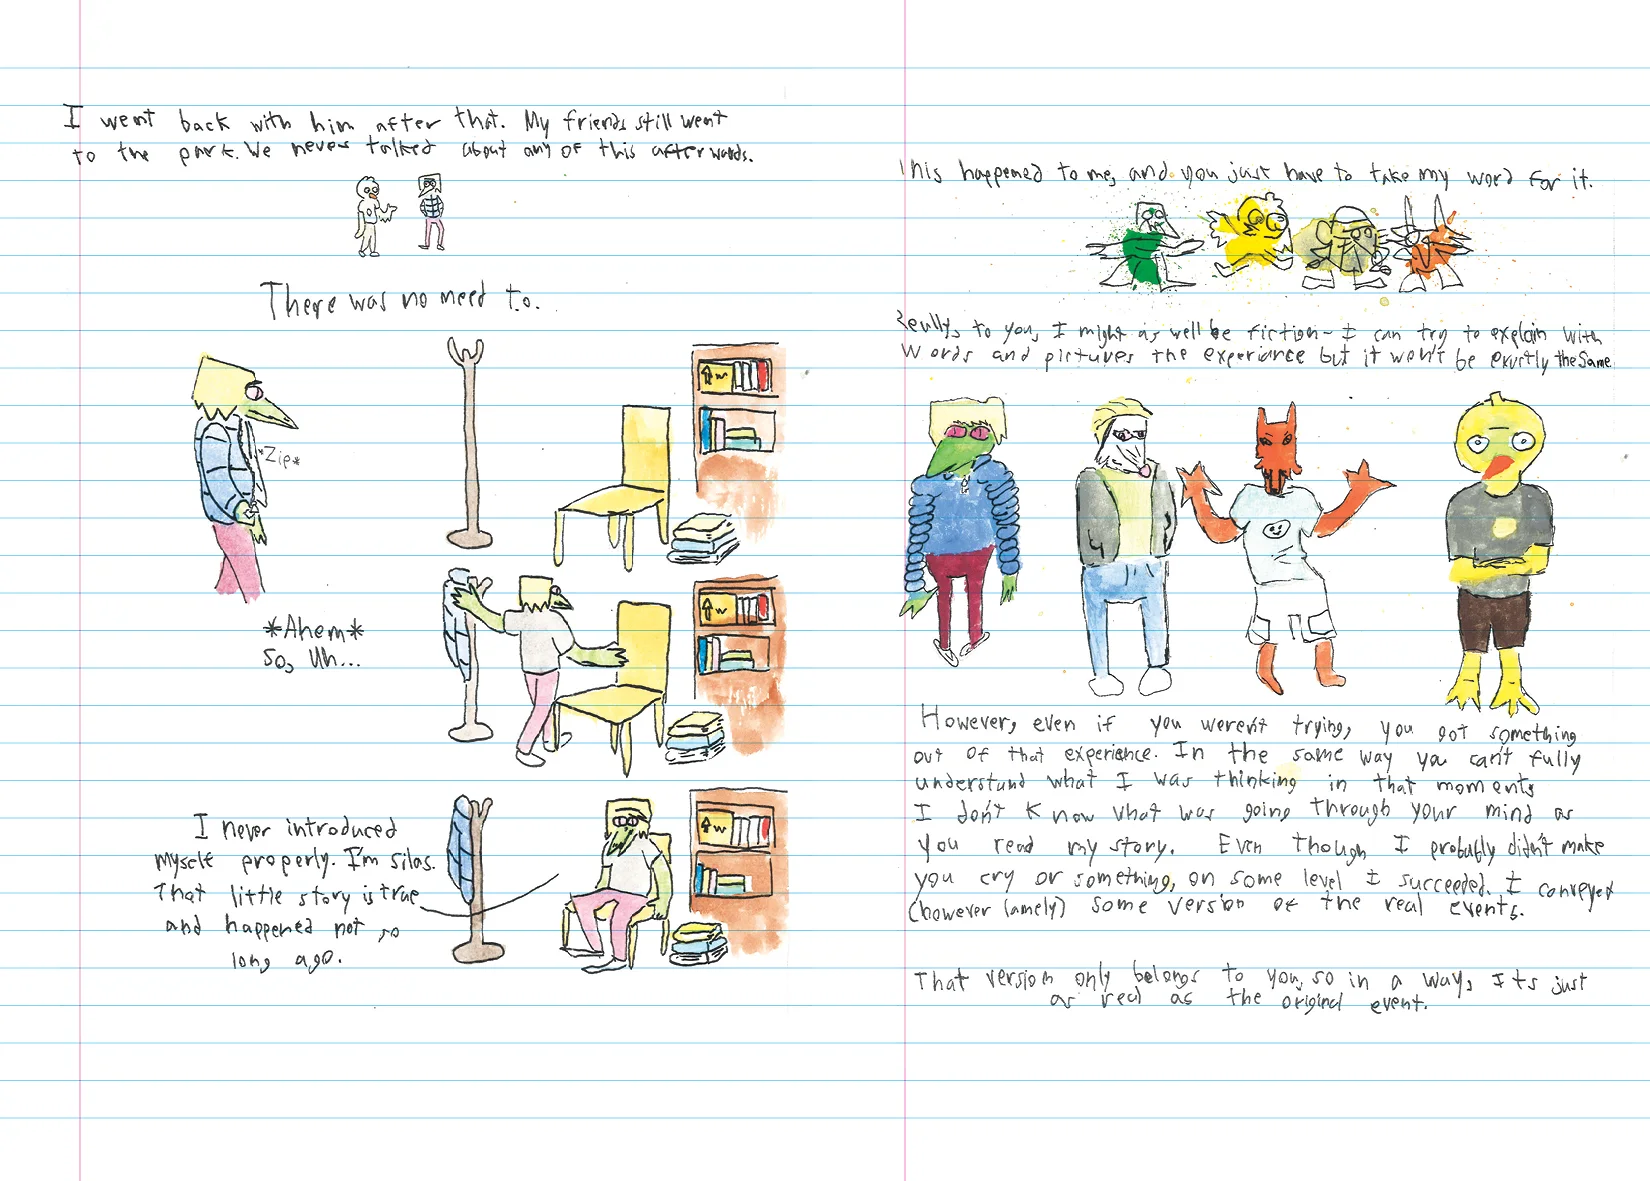 I went back with him after that. My friends still went
to the park. We never talked about any of this afterwards.
There was no need to.
*Zip*
*Ahem*
So, Uh...
I never introduced
myself properly. I'm silas.
That little story is true
and happened not so
long ago.
This happened to me, and you just have to take my word for it.
Really, to you, I might as well be fiction - I can try to explain with
words and pictures the experience but it won't be exactly the same
However, even if you weren't trying, you got something
out of that experience. In the same way you can't fully
understand what I was thinking in that moment,
I don't know what was going through your mind as
you read my story. Even though I probably didn't make
you cry or something, on some level I succeeded. I conveyed
(however lamely) some version of the real events.
That version only belongs to you, so in a way, Its just
as real as the original event.